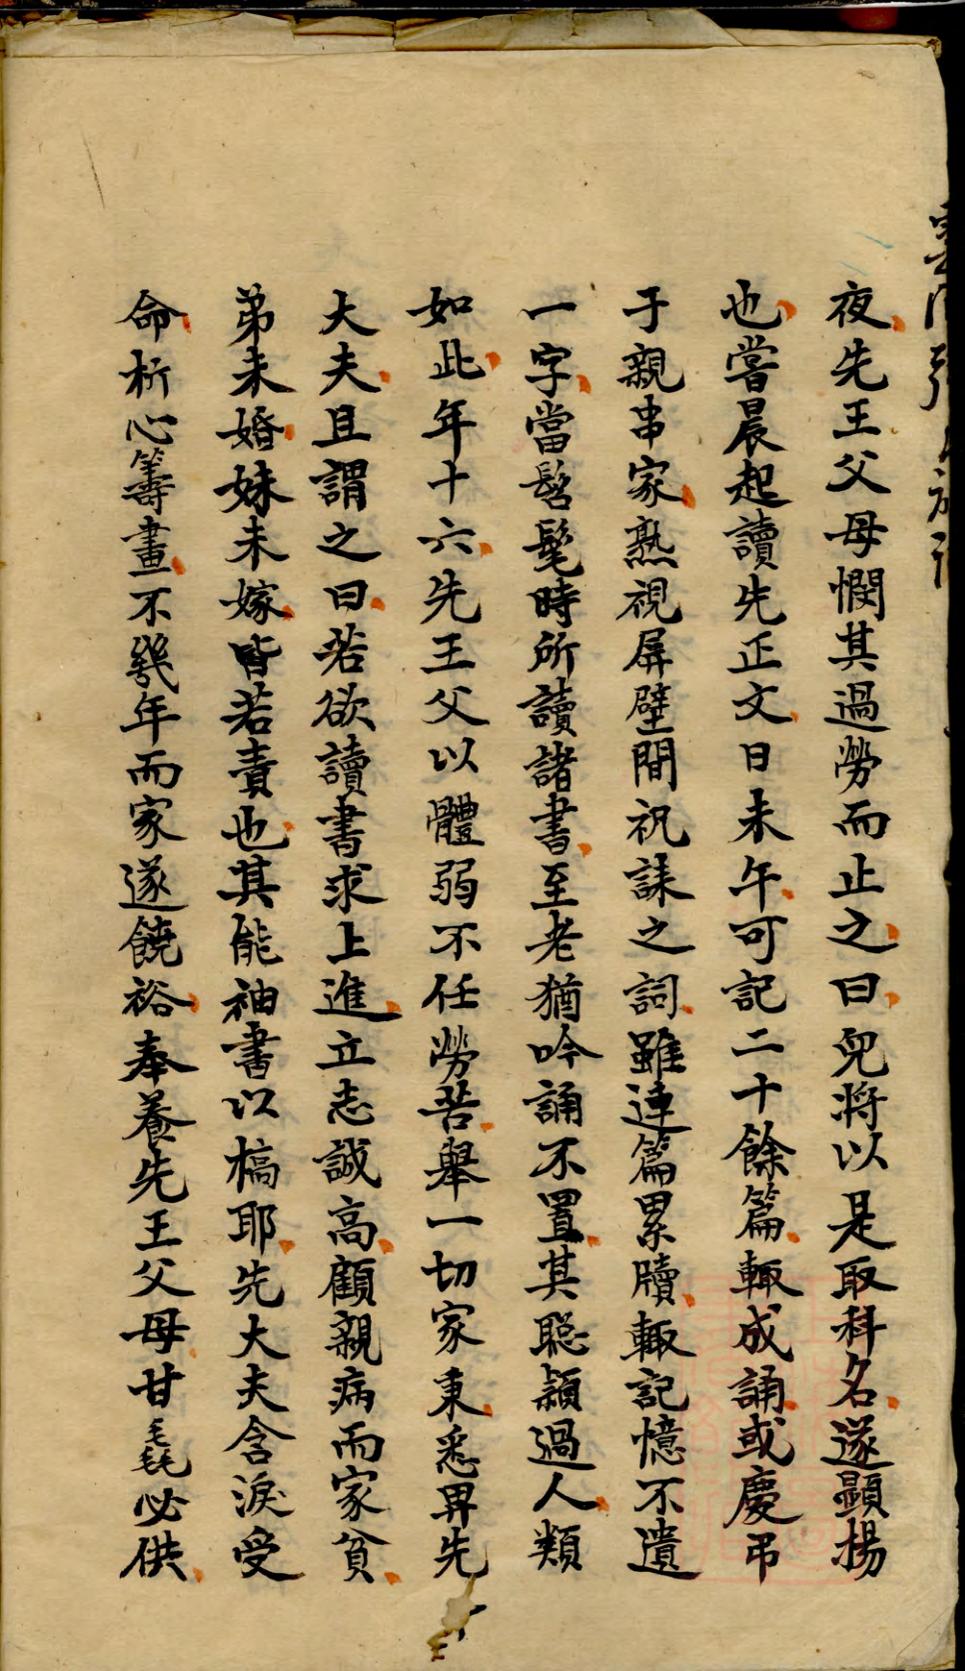 夜先王父母憫其過勞而止之曰兒將以是取科名遂顯揚
也嘗晨起讀先正文日未午可記二十餘篇輙成誦或慶弔
于親串家熟視屏壁間祝誄之詞雖連篇累牘輙記憶不遺
一字當髫髦時所讀諸書至老猶吟誦不置其聰穎過人類
如此年十六先王父以體弱不任勞苦舉一切家秉悉畀先
大夫且謂之曰若欲讀書求上進立志誠高顧親病而家貧
弟未婚妹未嫁皆若責也其能袖書以槁耶先大夫含淚受
命析心籌畫不幾年而家遂饒裕奉養先王父母甘毳必供